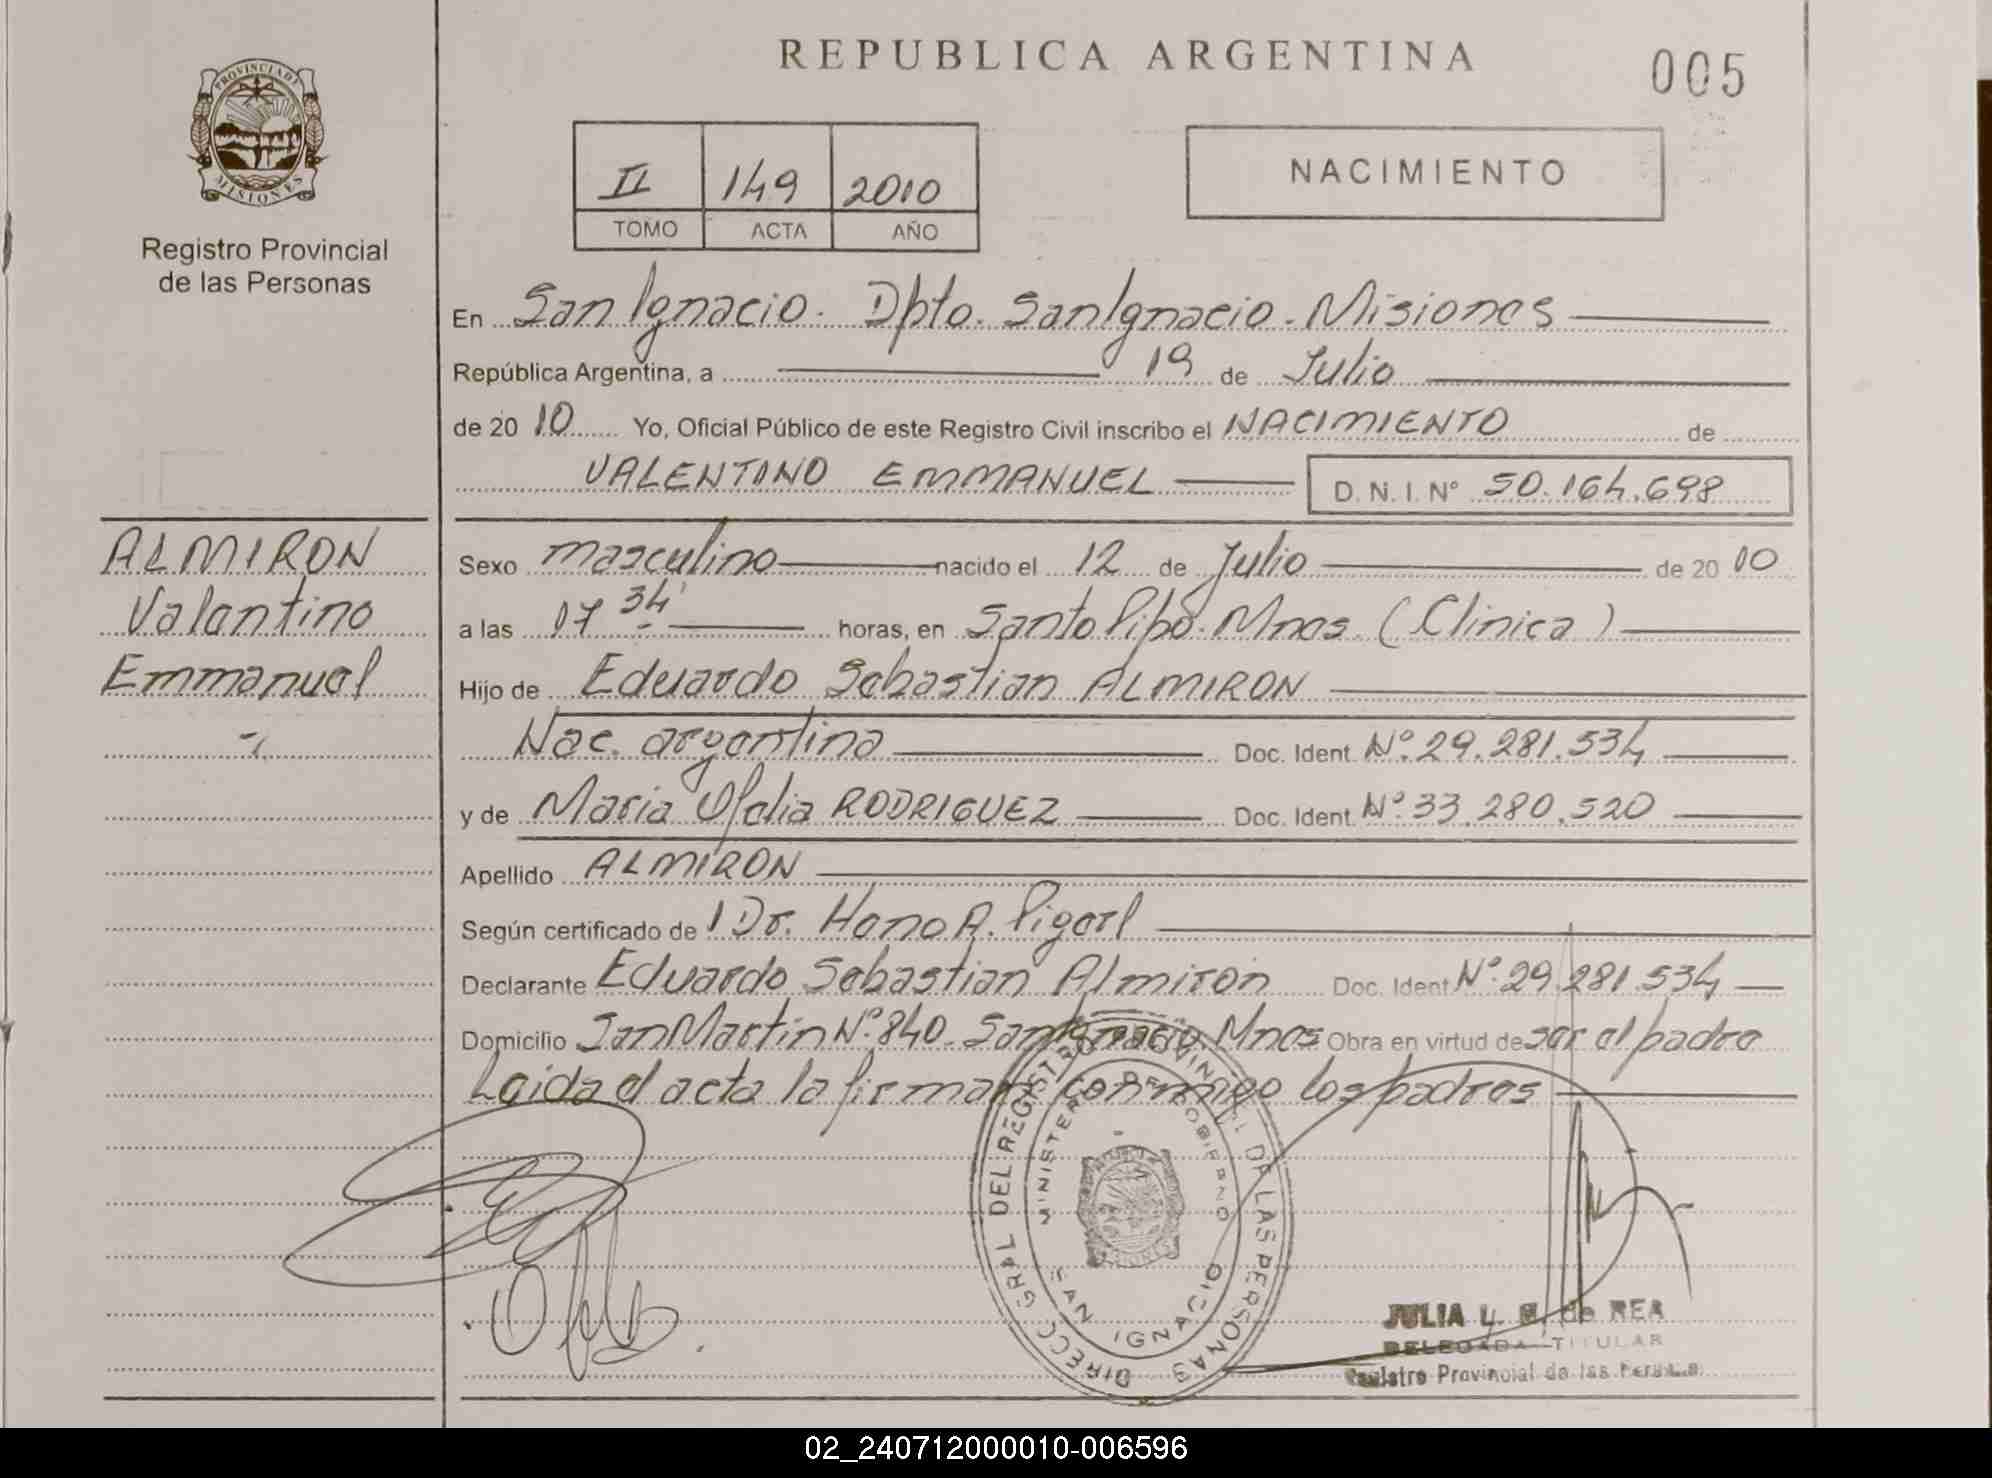 REPUBLICA ARGENTINA
005
PROVINCIA DE
MISIONES
Registro Provincial
de las Personas
II 149 2010
TOMO ACTA AÑO
NACIMIENTO
En San Ignacio. Dpto. San Ignacio. Misiones
República Argentina, a 19 de Julio
de 20 10 Yo, Oficial Público de este Registro Civil inscribo el NACIMIENTO de
VALENTINO EMMANUEL D. N. I. Nº 50.164.698
ALMIRON
Valentino
Emmanuel
Sexo masculino nacido el 12 de Julio de 20 10
a las 07 34' horas, en Santo Pipó. Mnes. (Clinica)
Hijo de Eduardo Sebastian ALMIRON
Nac. argentina Doc. Ident. Nº. 29.281.534
y de Maria Ofelia RODRIGUEZ Doc. Ident. Nº. 33.280.520
Apellido ALMIRON
Según certificado de l Dr. Hano A.
Declarante Eduardo Sebastian Almirón Doc. Ident. Nº. 29.281.534
Domicilio San Martin Nº. 840. San Ignacio. Mnes Obra en virtud de ser el padre
Leida el acta la firman conmigo los padres
DIRECC. GRAL. DEL REGISTRO PROVINCIAL DE LAS PERSONAS
MINISTERIO DE GOBIERNO
SAN IGNACIO
JULIA L. M. de REA
DELEGADA TITULAR
Registro Provincial de las Personas
02_240712000010-006596